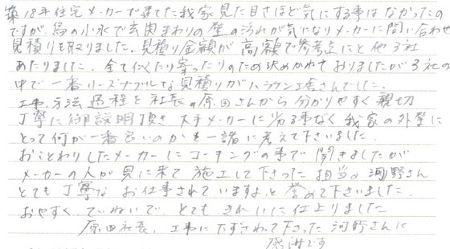 築18年住宅メーカーで建てた我家見た目さほど気にする事はなかったの
ですが、鳥の小水で玄関まわりの壁の汚れが気になりメーカーに問い合わせ
見積りを取りました。見積り金額が高額で参考迄にと他3社
あたりました。全て似たり寄ったりのため決めかねておりましたが3社の
中で一番リーズナブルな見積りがハラケンさんでした。
工事方法過程を社長の原田さんから分かりやすく親切
丁寧に御説明頂き大手メーカーに劣る事なく我家の外壁に
とって何が一番良いのかを一緒に考えて下さいました
おことわりしたメーカーにコーキングの事で聞きましたが
メーカーの人が見に来て施工して下さった担当の河野さん
とても丁寧なお仕事されていますよと誉めて下さいました。
おやすく、ていねいで、とてもきれいに仕上りました
原田社長、工事にたずさわって下さった河野さんに
感謝です